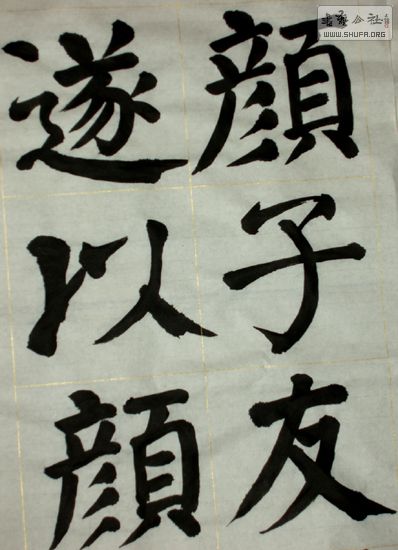 顔子友
遂以顔
書法会社
WWW.SHUFA.ORG